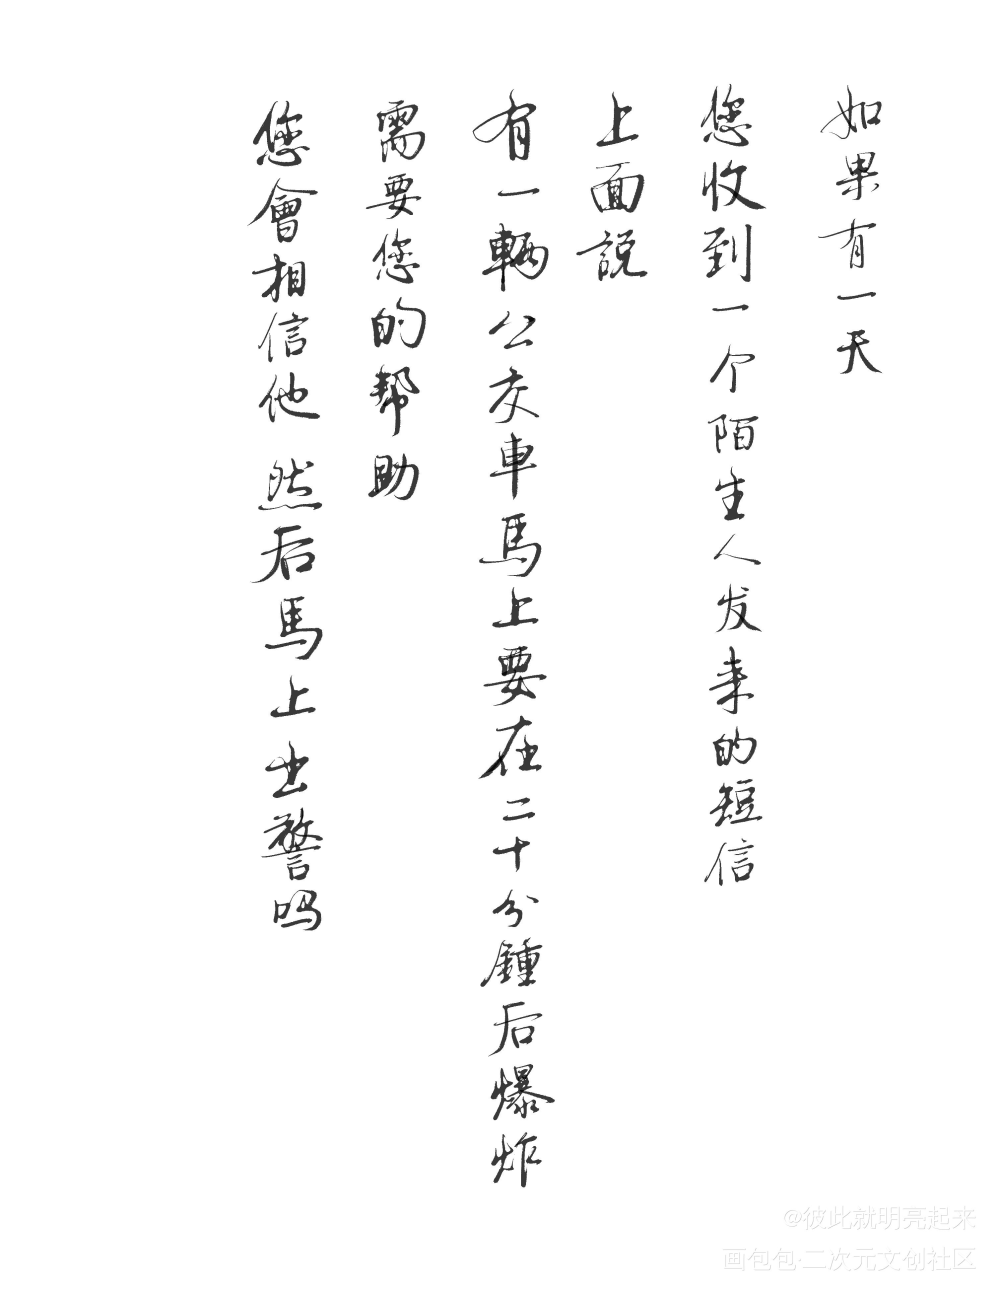 如果有一天
您收到一个陌生人发来的短信
上面説
有一輌公交車馬上要在二十分鍾后爆炸
需要您的帮助
您會相信他 然后馬上出警吗
@彼此就明亮起来
画包包·二次元文创社区